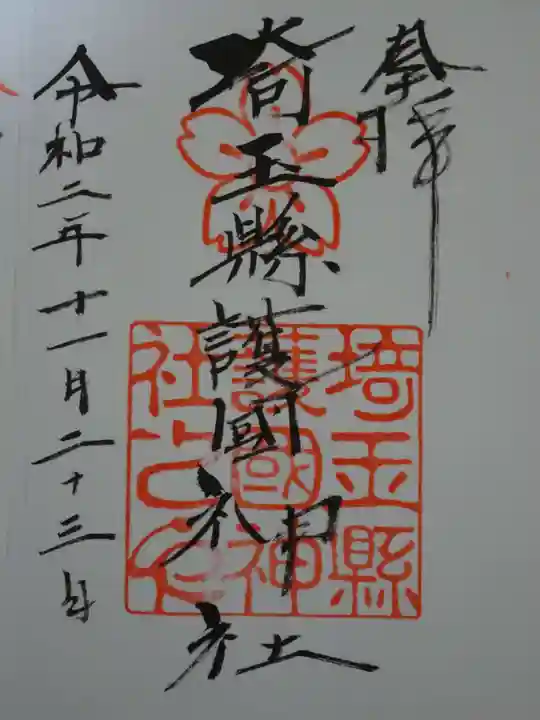 奉拝
埼玉縣護國神社
令和二年十一月二十三日
埼玉縣
護國神
社之印